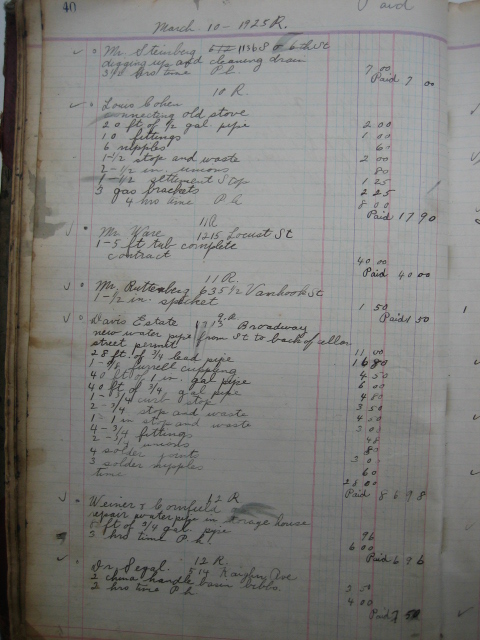 40
Paid
March 10 - 1925 R.
Mr. Steinberg 1136 S 6th St
digging up and cleaning drain
3 1/2 hrs time P.L. 7 00
Paid 7 00
10 R.
Louis Cohen
connecting old stove
20 ft of 1/2 gal pipe 2 00
10 fittings 1 00
6 nipples 60
1-1/2 stop and waste 2 00
2-1/2 in. unions 80
1-1/2 settlement stop 1 25
3 gas brackets 2 25
4 hrs time P L 8 00
Paid 17 90
11 R
Mr. Ware 1215 Locust St
1-5 ft tub complete
contract 40 00
Paid 40 00
11 R.
Mr. Rottenberg 635 1/2 Vanhook St
1-1/2 in. spicket 1 50
Paid 1 50
9.R
Davis Estate 1313 Broadway
new water pipe from St to back of cellar
street permit 11 00
28 ft. of 3/4 lead pipe 16 80
1-3/4 furrell cuppling
40 ft of 1 in. gal pipe 4 50
40 ft of 3/4 gal pipe 6 00
1-3/4 curb stop 4 80
2-3/4 stop and waste 3 50
1-1 in stop and waste 4 50
4-3/4 fittings 3 00
2-3/4 unions 48
4 solder joints 80
3 solder nipples 3 0
time 60
28 00
Paid 86 98
12 R
Weiner & Cornfield
repair water pipe in storage house
8 ft of 3/4 gal pipe 96
3 hrs time P.L. 6 00
Paid 6 96
12 R.
Dr. Segal. 514 Kaighn Ave
2 china handle basin bibbs 3 50
2 hrs time P L 4 00
Paid 7 50